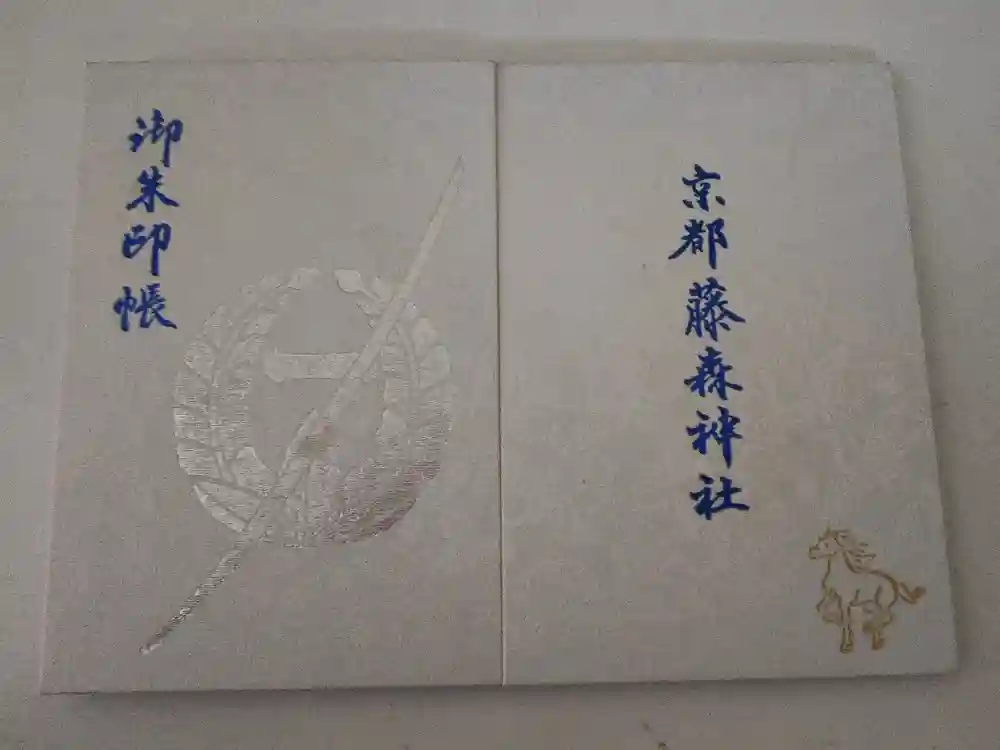 御朱印帳
京都藤森神社